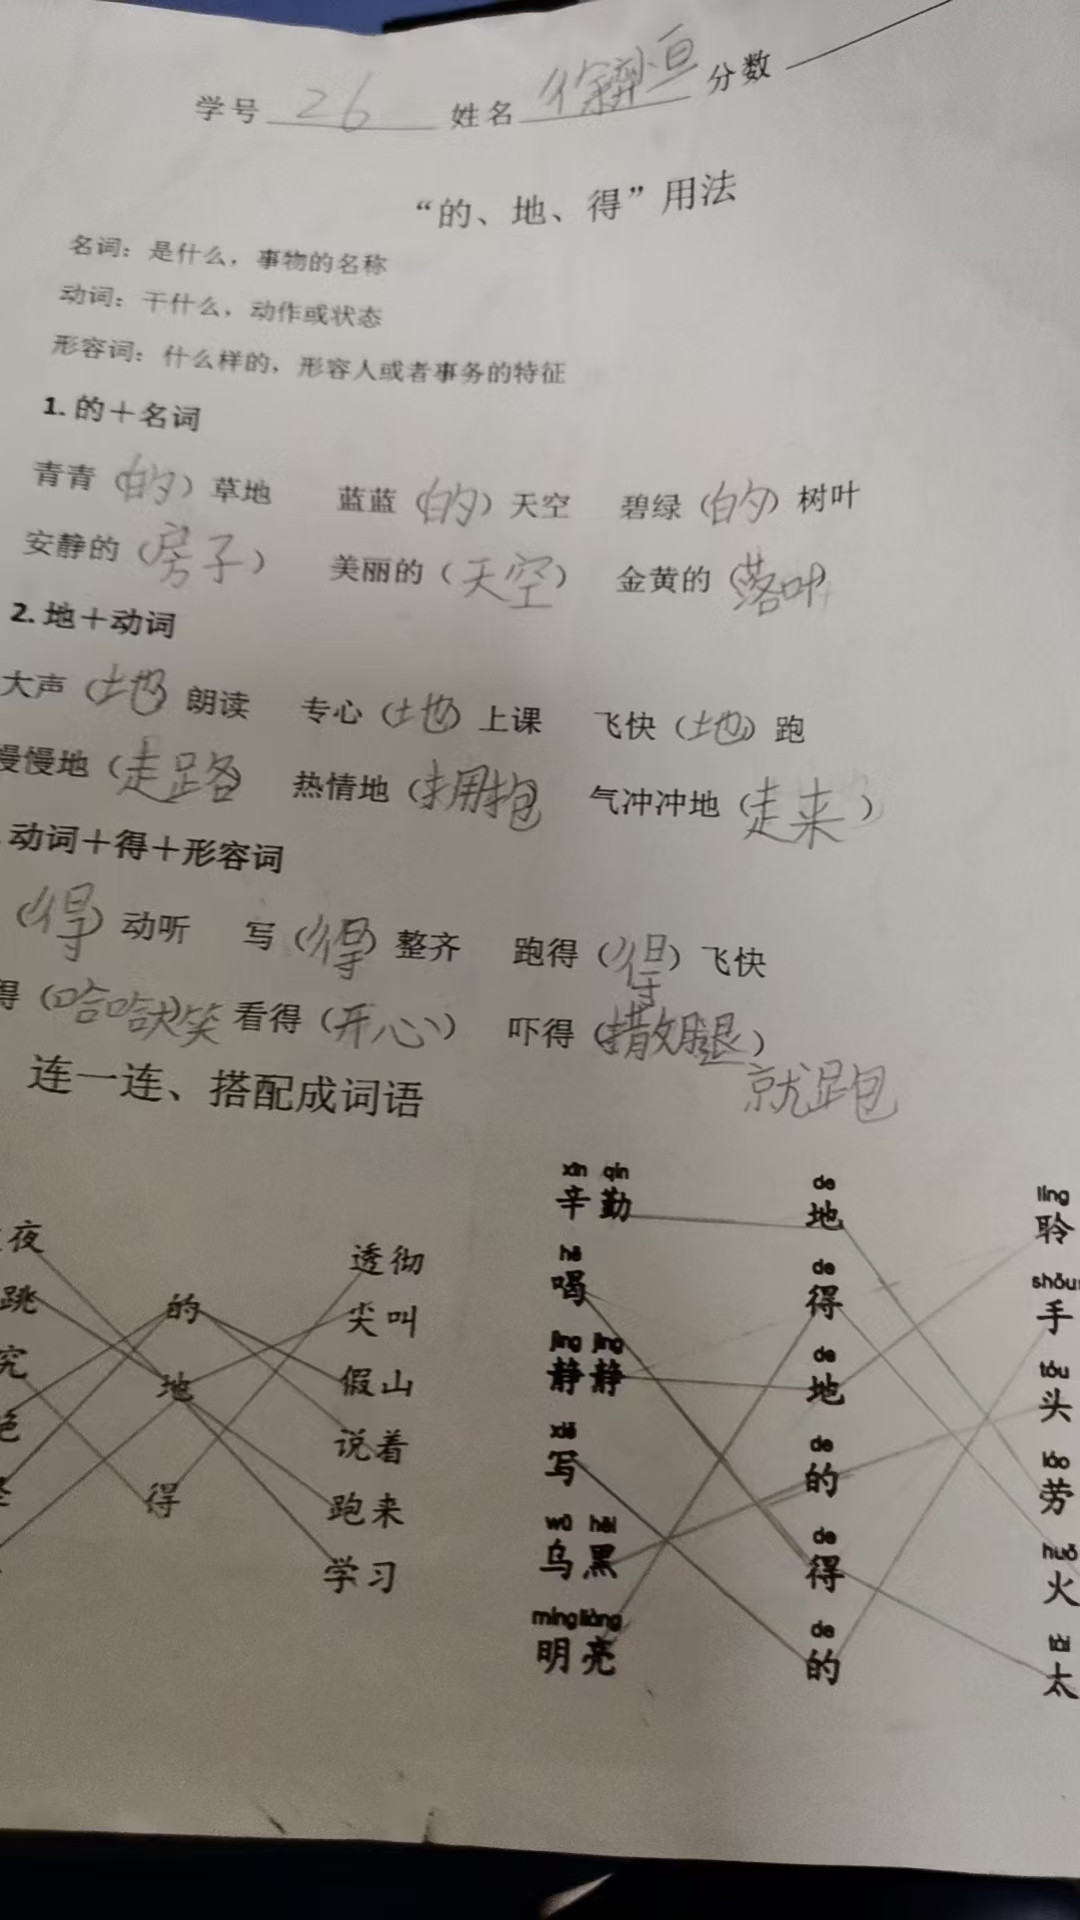 学号 26 姓名 徐 分数
“的、地、得”用法
名词：是什么，事物的名称
动词：干什么，动作或状态
形容词：什么样的，形容人或者事务的特征
1. 的＋名词
青青（的）草地 蓝蓝（的）天空 碧绿（的）树叶
安静的（房子） 美丽的（天空） 金黄的（落叶）
2. 地＋动词
大声（地）朗读 专心（地）上课 飞快（地）跑
慢慢地（走路） 热情地（拥抱） 气冲冲地（走来）
动词＋得＋形容词
（得）动听 写（得）整齐 跑得（得）飞快
得（哈哈大笑 看得（开心） 吓得（撒腿）
就跑
连一连、搭配成词语
夜
跳
究
的
地
得
透彻
尖叫
假山
说着
跑来
学习
xīn qín
辛勤
hē
喝
jìng jìng
静静
xiě
写
wū hēi
乌黑
míng liàng
明亮
de
地
de
得
de
地
de
的
de
得
de
的
líng
聆
shǒu
手
tóu
头
láo
劳
huǒ
火
tài
太